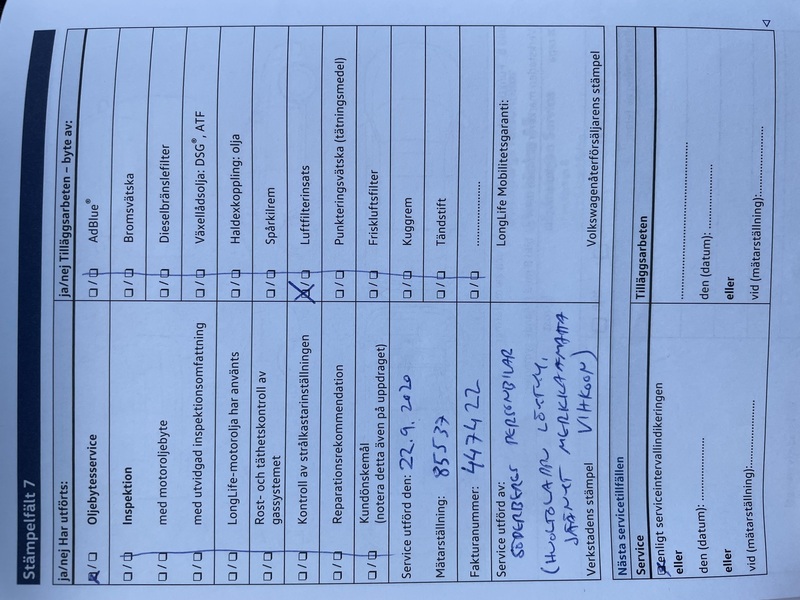 Stämpelfält 7
ja/nej Har utförts:
☒ / ☐ Oljebytesservice
☐ / ☐ Inspektion
☐ / ☐ med motoroljebyte
☐ / ☐ med utvidgad inspektionsomfattning
☐ / ☐ LongLife-motorolja har använts
☐ / ☐ Rost- och täthetskontroll av
gassystemet
☐ / ☐ Kontroll av strålkastarinställningen
☐ / ☐ Reparationsrekommendation
☐ / ☐ Kundönskemål
(notera detta även på uppdraget)
Service utförd den: 22.9.2020
Mätarställning: 85537
Fakturanummer: 447422
Service utförd av:
SÖDERBERGS PERSONBILAR
(HUOLTOLAPPU LÖYTYY,
JÄÄNYT MERKKAAMATTA
VIHKOON)
Verkstadens stämpel
ja/nej Tilläggsarbeten – byte av:
☐ / ☐ AdBlue®
☐ / ☐ Bromsvätska
☐ / ☐ Dieselbränslefilter
☐ / ☐ Växellådsolja: DSG®, ATF
☐ / ☐ Haldexkoppling: olja
☐ / ☐ Spårkilrem
☒ / ☐ Luftfilterinsats
☐ / ☐ Punkteringsvätska (tätningsmedel)
☐ / ☐ Friskluftsfilter
☐ / ☐ Kuggrem
☐ / ☐ Tändstift
☐ / ☐ ....................
LongLife Mobilitetsgaranti:
Volkswagenåterförsäljarens stämpel
Nästa servicetillfällen
Service
☒ enligt serviceintervallindikeringen
eller
den (datum): ....................
eller
vid (mätarställning):....................
Tilläggsarbeten
........................................
den (datum): ....................
eller
vid (mätarställning):....................